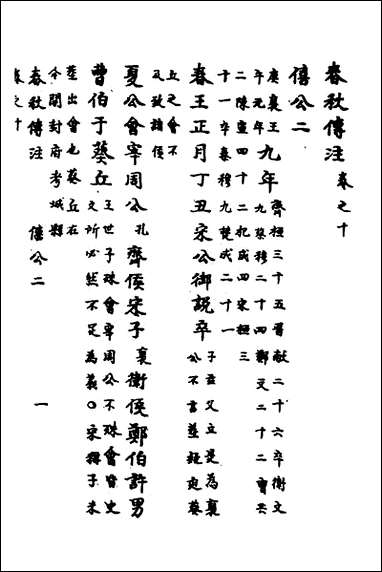 春秋傳注 卷之十
僖公二
庚襄王
午元年
九年
齊桓三十五晉献二十六卒衛文
九蔡穆二十四鄭文二十二曹共
二陳宣四十二杞成四宋桓三
十一卒秦穆九楚成二十一
春王正月丁丑宋公御説卒
子玆父立是為襄
公不書葬經 葵
丘之會不
及 諸侯
夏公會宰周公 孔 齊侯宋子 襄 衛侯鄭伯許男
曹伯于葵丘
王世子殊會宰周公不殊會皆史
文所必然不足為義〇宋稱子未
葬出會也葵丘在
今開封府考城縣
春秋傳注 僖公二 一
卷之十